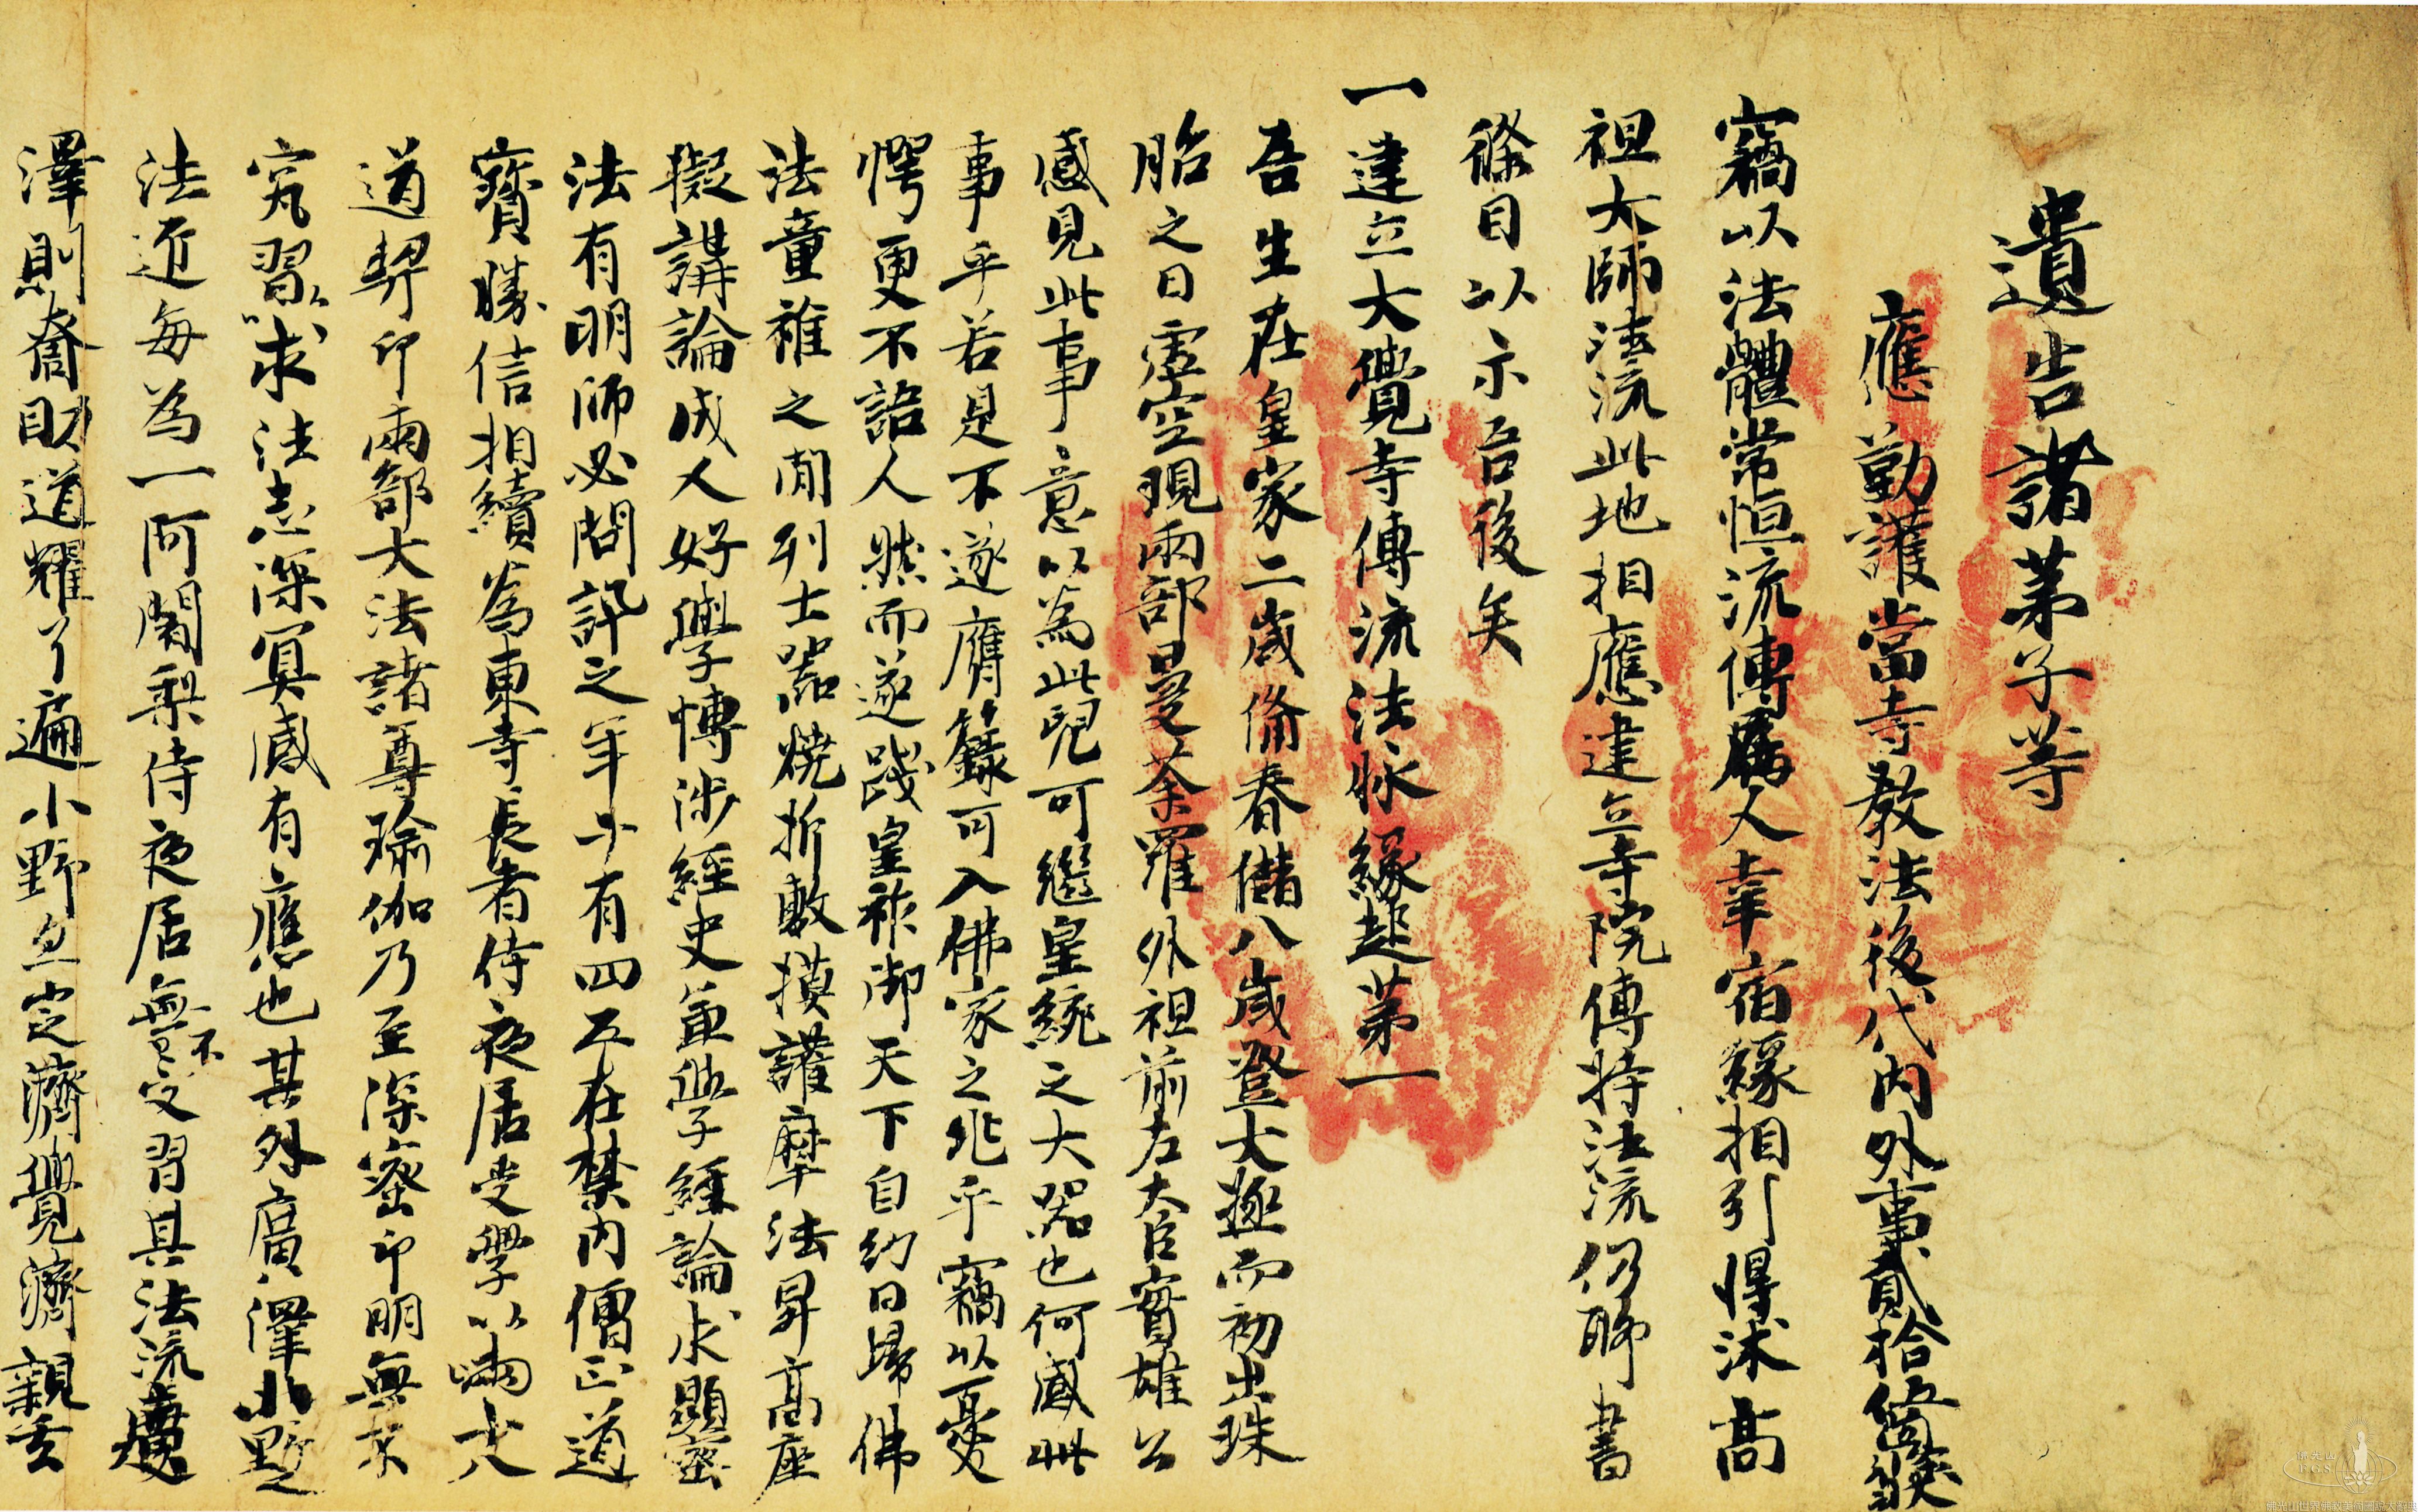 遺告諸弟子等
應勤護當寺教法後代内外事貳拾箇條
竊以法體常恒流傳属人幸宿緣相引得沐高
祖大師法流此地相應建立寺院傳持法流仍聊書
條目以示吾後矣
一建立大覺寺傳流法脉緣起第一
吾生在皇家二歳備春儲八歳登大極而初出珠
胎之日虚空現兩部曼荼羅外祖前左大臣實雄公
感見此事意以為此兒可繼皇統之大器也何感此
事乎若是不遂膺籙可入佛家之兆乎竊以憂
愕更不語人然而遂踐皇祚御天下自約日歸佛
法童稚之間列士器燒折敷摸護摩法昇高座
擬講論成人好學博涉經史兼學經論求顯密
法有明師必問訊之年廿有四五在禁内僧正道
寶勝信相續為東寺長者侍夜居受學以兩十八
道契印兩部大法諸尊瑜伽乃至深密印明無不
究習求法志深冥感有應也其外廣澤小野之
法匠每為一阿闍梨侍夜居無不受習其法流
澤則喬助道耀了遍小野且定濟覺濟親玄